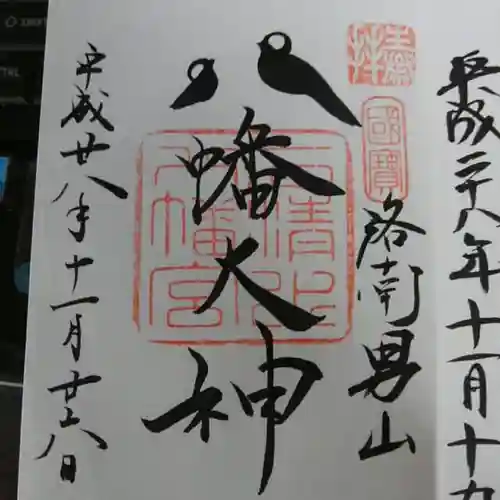 平成二十八年十一月十九
奉拝
國寶
洛南男山
八幡大神
石清水
八幡宮
平成廿八年十一月廿六日